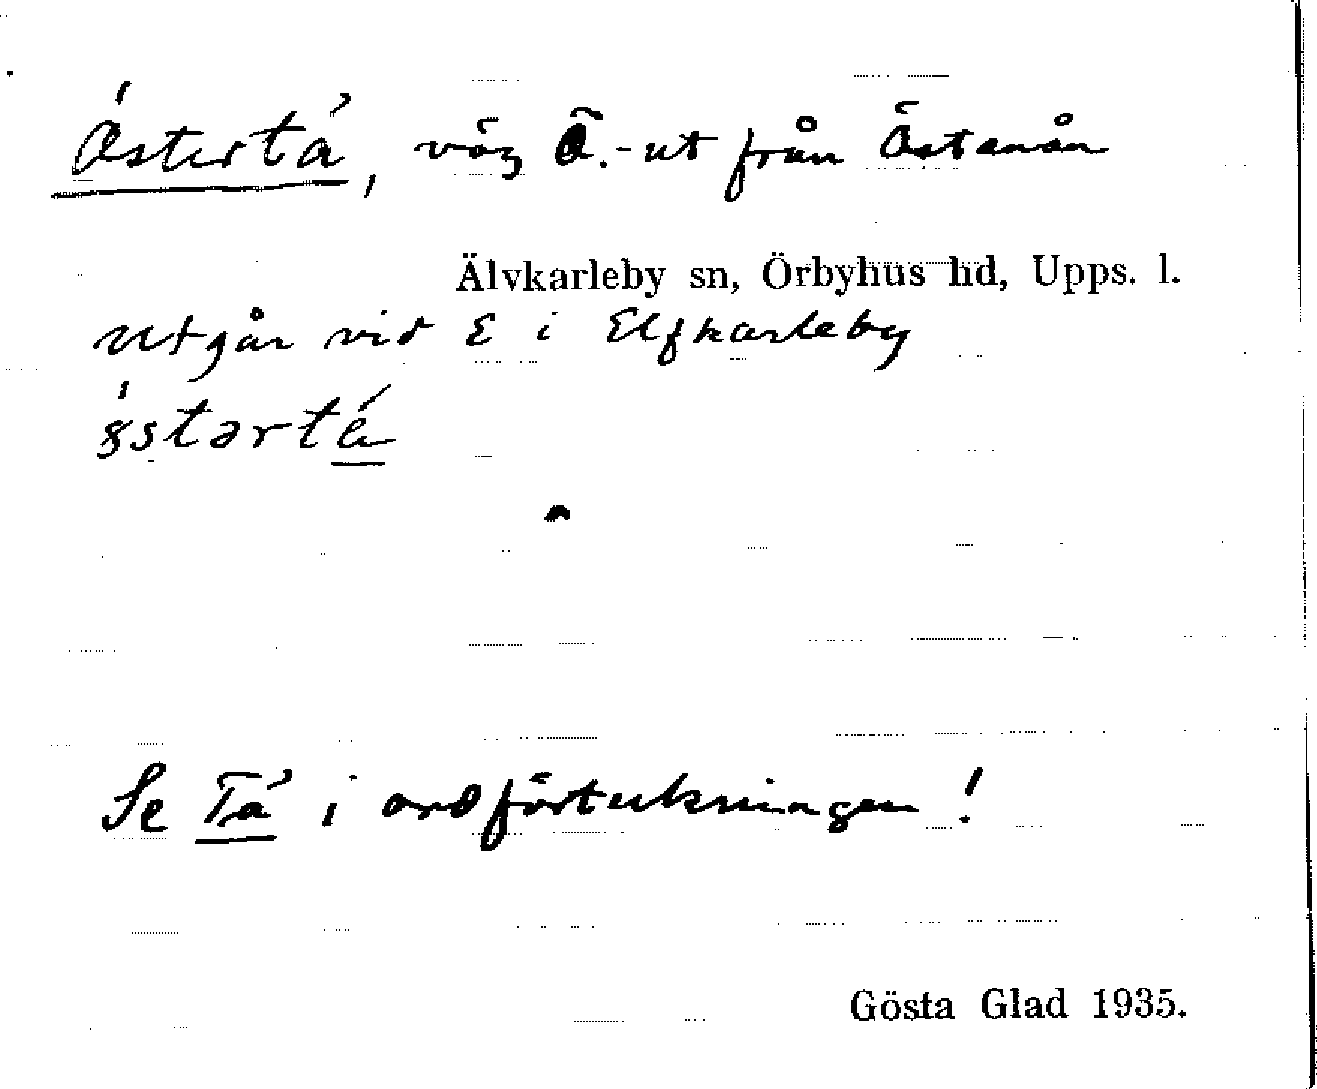 Östertå, väg Ö.-ut från Östanån
Älvkarleby sn, Örbyhus hd, Upps. l.
utgår vid E i Elfkarleby
Se Tå i ordförteckningen!
Gösta Glad 1935.